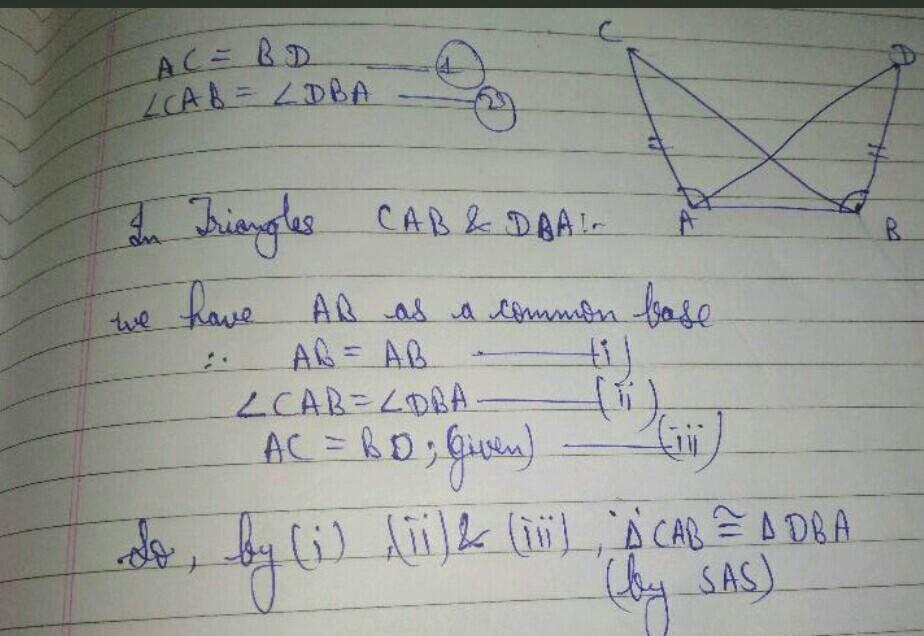 AC = BD —— 1
∠CAB = ∠DBA —— 2
C
D
A
B
In Triangles CAB & DBA:-
we have AB as a common base
∴ AB = AB —— (i)
∠CAB = ∠DBA —— (ii)
AC = BD; Given) —— (iii)
So, by (i), (ii) & (iii), ΔCAB ≅ ΔDBA
(by SAS)